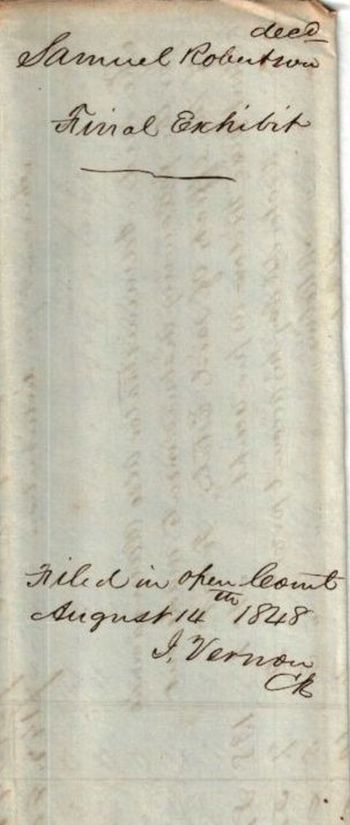 Samuel Robertson decd
Final Exhibit
Filed in open Court
August 14th 1848
J. Vernon
Ck